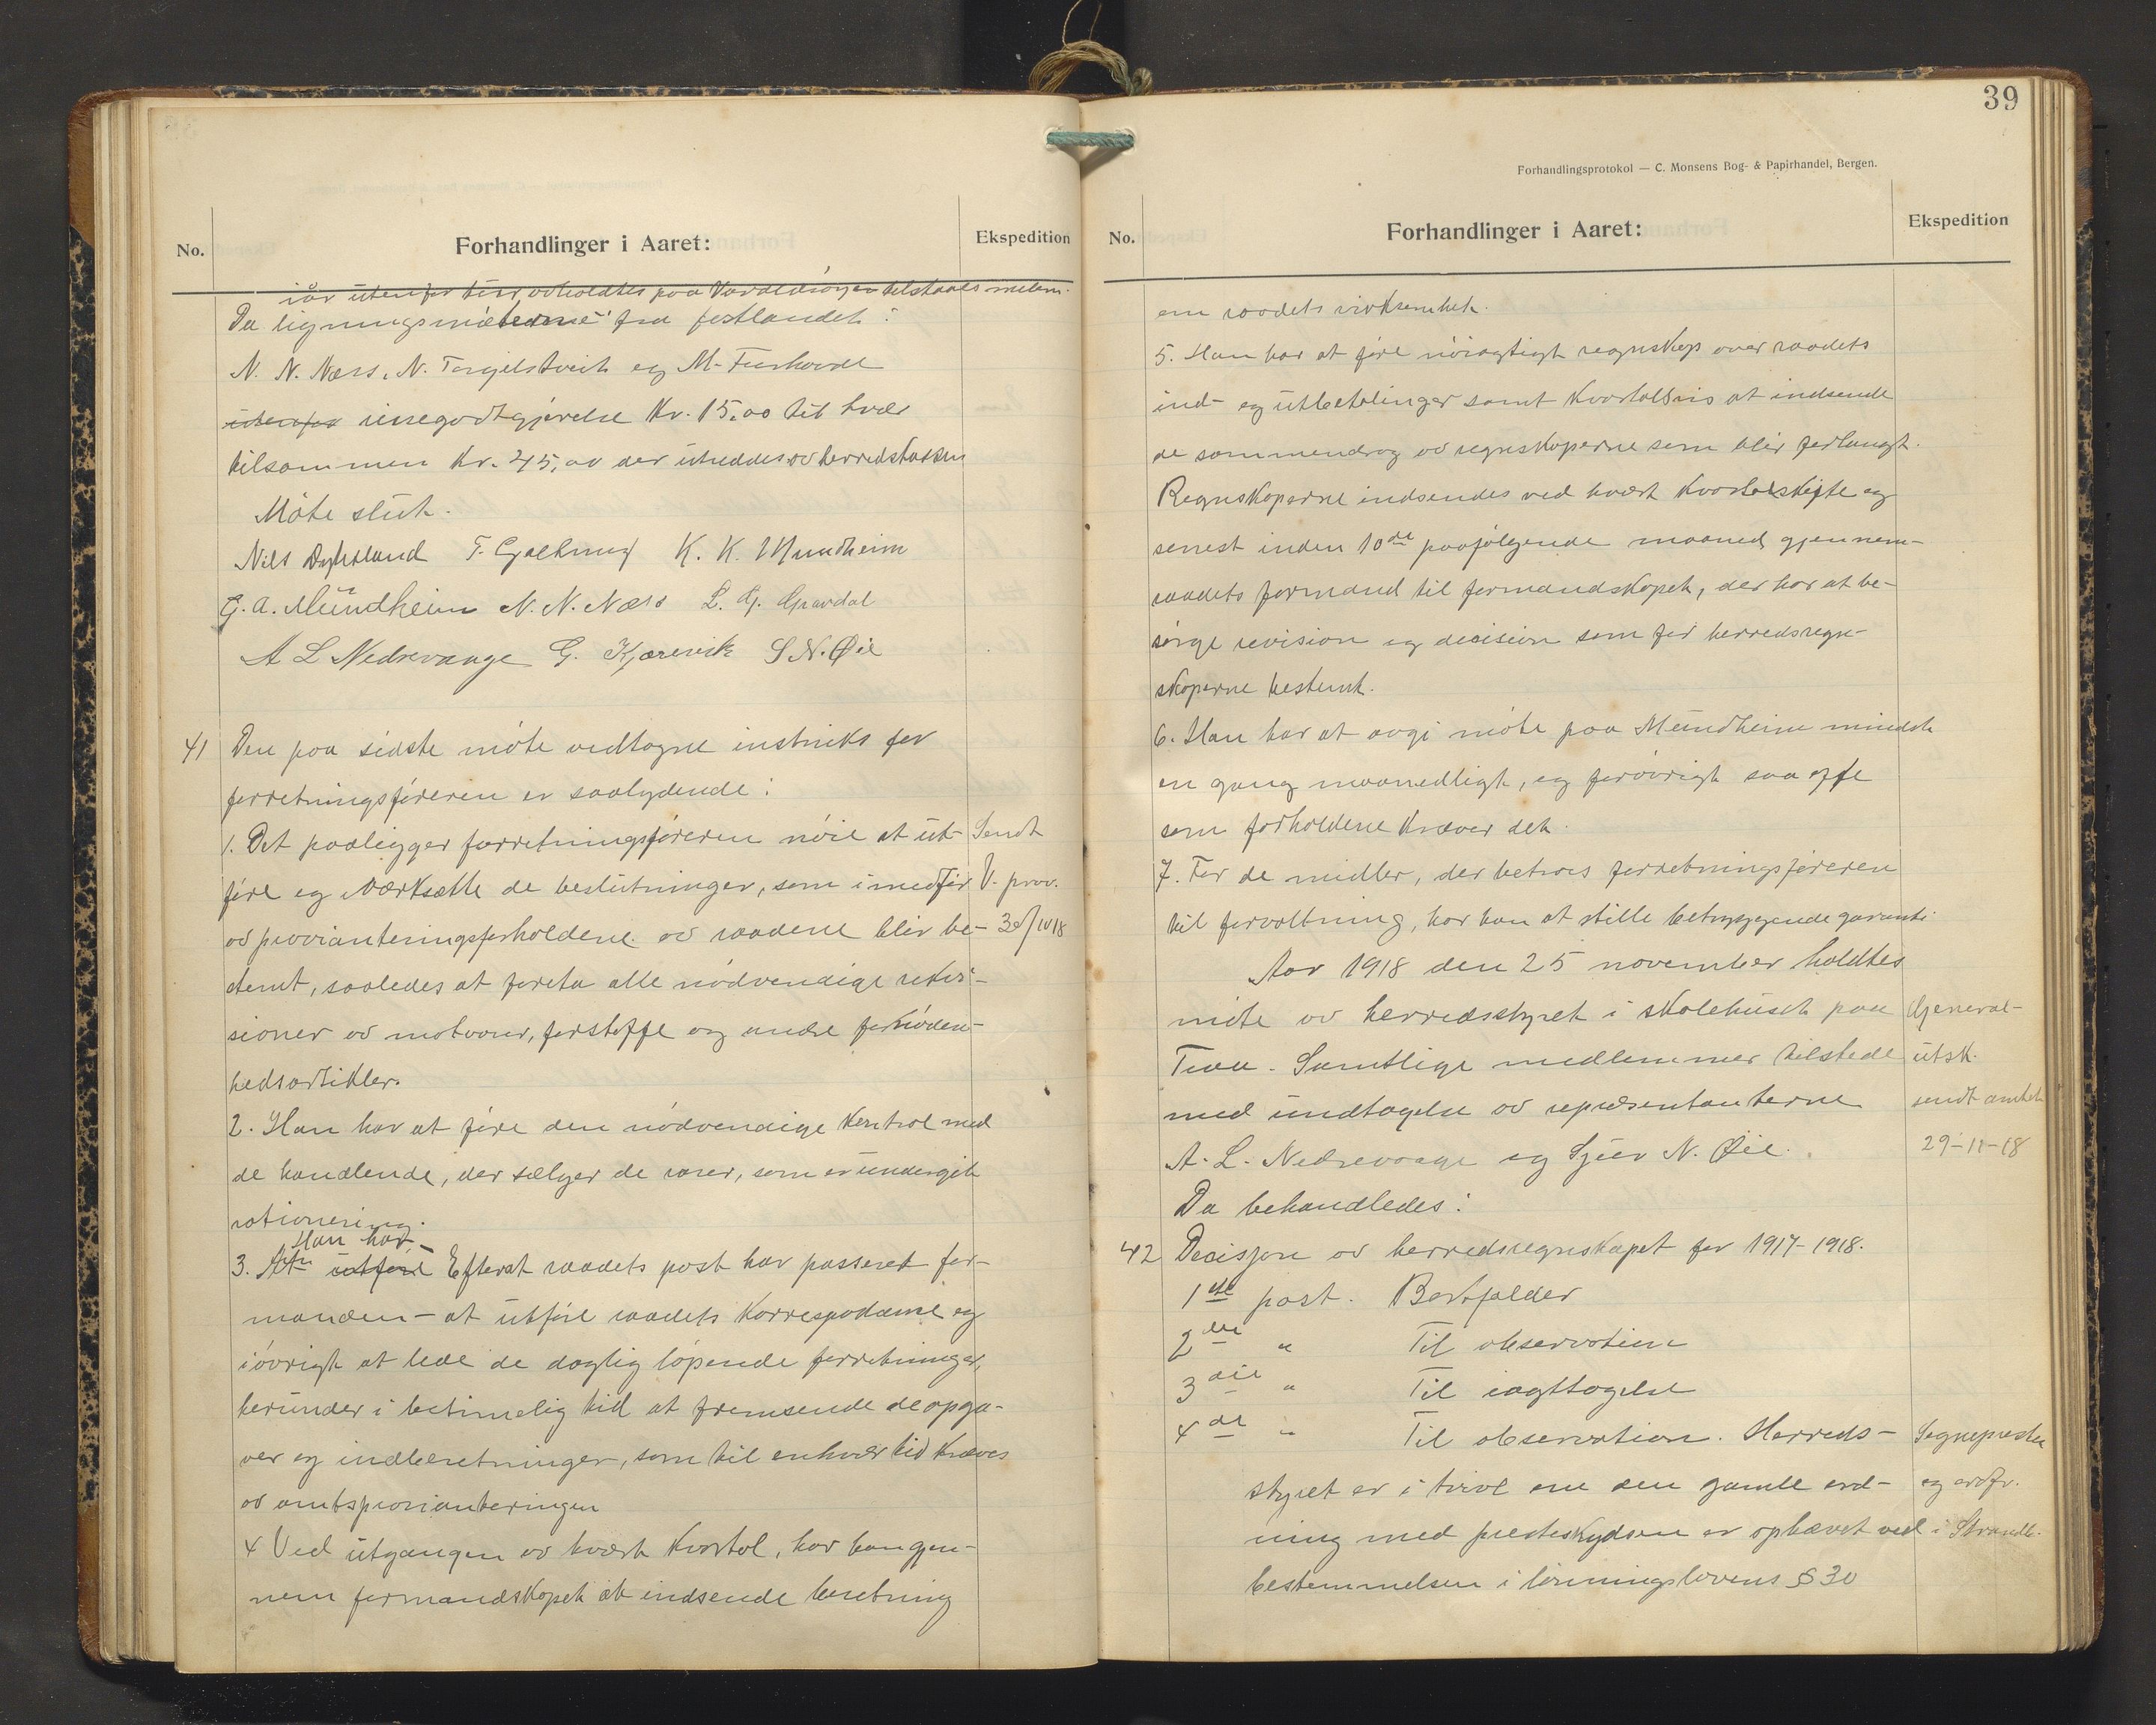 No.
Forhandlinger i Aaret:
Ekspedition
iår utenfor tur avholdtes paa Varaldsöyen tilstaaes medlem.
Da ligningsmöterne fra fastlandet:
N. N. Næss, N. Torgilstveit og M. Furhovde
utenfor reisegodtgjörelse Kr. 15,00 til hver
tilsammen Kr. 45,00 der utreddes av herredskassen
Möte slut.
Nils Dysvland T. Gjethmus K. K. Mundheim
G. A. Mundheim N. N. Næss L. G. Gravdal
A L Nedrevaage G. Kjærevik S N. Øie
41 Den paa sidste möte vedtagne instruks for
forretningsföreren er saalydende:
1. Det paaligger forretningsföreren nöie at ut-
Sendt
före og iverksætte de beslutninger, som i medför
V. prov.
av provianteringsforholdene av raadene blir be-
30/10 18
stemt, saaledes at foreta alle nödvendige rekvi-
sioner av matvarer, forstoffe og andre fornöden-
hedsartikler.
2. Han har at före den nödvendige kontrol med
de handlende, der sælger de varer, som er undergit
rationering.
Han har
3. At utföre Efterat raadets post har passeret for-
manden - at utföre raadets korrespodanse og
iövrigt at lede de daglig löpende forretninger,
herunder i betimelig tid at fremsende de opga-
ver og indberetninger, som til enhver tid kræves
av amtsprovianteringen
4 Ved utgangen av hvert kvartal, har han gjen-
nem formandskapet at indsende beretning
39
Forhandlingsprotokol — C. Monsens Bog- & Papirhandel, Bergen.
No.
Forhandlinger i Aaret:
Ekspedition
om raadets virksomhet.
5. Han har at före nöiagtigt regnskap over raadets
ind- og utbetalinger samt kvartalsvis at indsende
de sammendrag av regnskaperne som blir forlangt.
Regnskaperne indsendes ved hvert kvartalskifte og
senest inden 10de paafölgende maaned gjennem-
raadets formand til formandskapet, der har at be-
sörge revision og decision som for herredsregn-
skaperne bestemt.
6. Han har at avgi möte paa Mundheim mindst
en gang maanedligt, og forövrigt saa ofte
som forholdene kræver det.
7. For de midler, der betroes forretningsföreren
til forvaltning, har han at stille betryggende garanti.
Aar 1918 den 25 november holdtes
möte av herredsstyret i skolehuset paa
General-
Tveu. Samtlige medlemmer tilstede
utsk.
med undtagelse av repræsentanterne
sendt amtet
A. L. Nedrevaage og Sjur N. Øie.
29-11-18
Da behandledes:
42 Decisjon av herredsregnskapet for 1917-1918.
1ste post. Bortfalder
2den " Til observation
3die " Til iagttagelse
4de " Til observation. Herreds-
Sognepresten
styret er i tvivl om den gamle ord-
og ordfr.
ning med presteskydsen er ophævet ved
i Strandb.
bestemmelsen i lönningslovens § 30